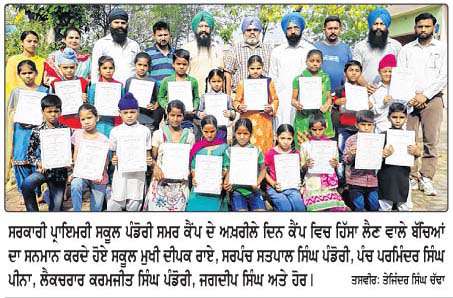 ਸਰਕਾਰੀ ਪ੍ਰਾਇਮਰੀ ਸਕੂਲ ਪੰਡੋਰੀ ਸਮਰ ਕੈਂਪ ਦੇ ਅਖ਼ਰੀਲੇ ਦਿਨ ਕੈਂਪ ਵਿਚ ਹਿੱਸਾ ਲੈਣ ਵਾਲੇ ਬੱਚਿਆਂ
ਦਾ ਸਨਮਾਨ ਕਰਦੇ ਹੋਏ ਸਕੂਲ ਮੁਖੀ ਦੀਪਕ ਰਾਏ, ਸਰਪੰਚ ਸਤਪਾਲ ਸਿੰਘ ਪੰਡੋਰੀ, ਪੰਚ ਪਰਮਿੰਦਰ ਸਿੰਘ
ਪੀਨਾ, ਲੈਕਚਰਾਰ ਕਰਮਜੀਤ ਸਿੰਘ ਪੰਡੋਰੀ, ਜਗਦੀਪ ਸਿੰਘ ਅਤੇ ਹੋਰ।
ਤਸਵੀਰ: ਤੇਜਿੰਦਰ ਸਿੰਘ ਚੱਢਾ